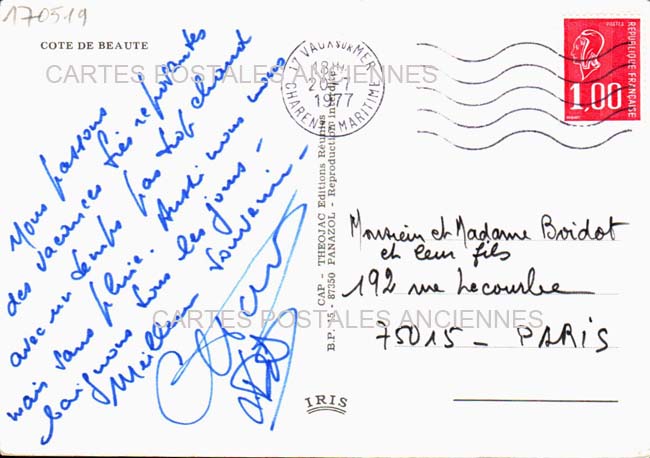 170519
COTE DE BEAUTE
CARTES POSTALES ANCIENNES
Nous passons
des vacances très reposantes
avec un temps pas trop chaud
mais sans pluie. Aussi nous nous
baignons tous les jours -
Meilleur souvenir -
17 VAUX SUR MER
18H
1977
CHARENTE MARITIME
POSTES
REPUBLIQUE FRANÇAISE
1,00
CAP - THEOJAC Editions Réunies
B.P. 15 - 87350 PANAZOL - Reproduction interdite
Monsieur et Madame Boidot
et leur fils
192 rue Lecourbe
75015 - PARIS
CARTES POSTALES ANCIENNES
IRIS